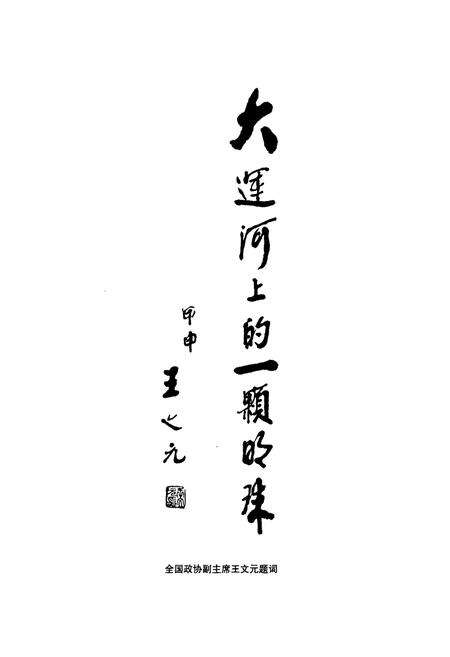 大運河上的一顆明珠
甲申
王文元
全国政协副主席王文元题词